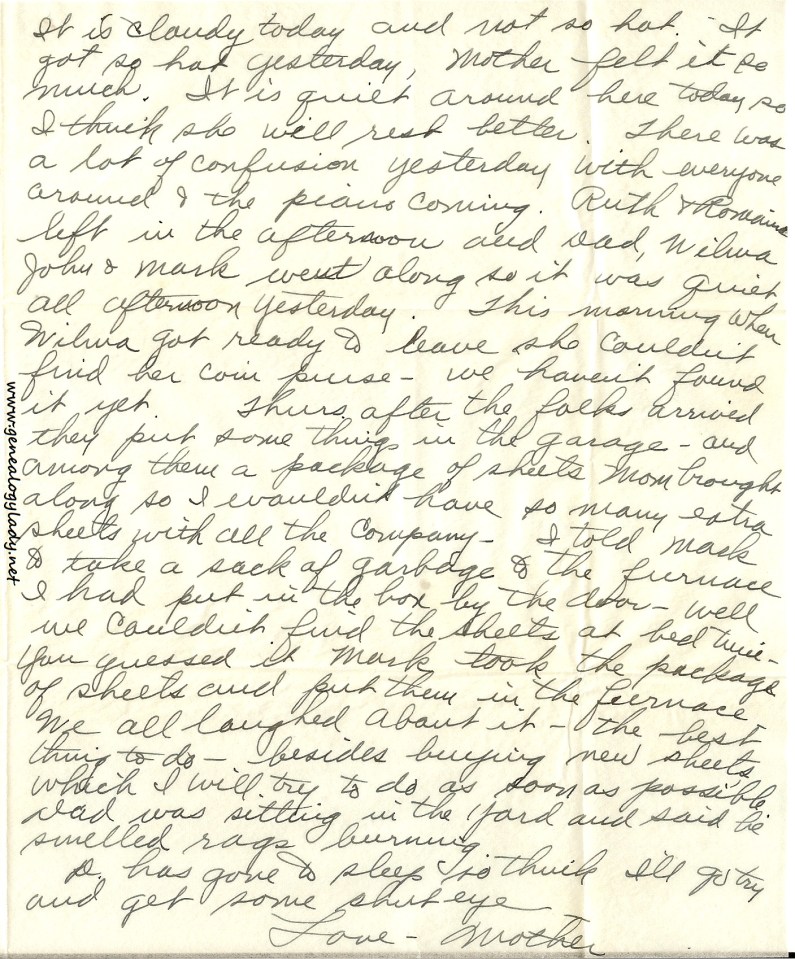 It is cloudy today and not so hot. It
got so hot yesterday, Mother felt it so
much. It is quiet around here today so
I think she will rest better. There was
a lot of confusion yesterday with everyone
around & the piano coming. Ruth & Romaine
left in the afternoon and Dad, Wilma
John & Mark went along so it was quiet
all afternoon yesterday. This morning when
Wilma got ready to leave she couldn't
find her coin purse - we haven't found
it yet. Thurs. after the folks arrived
they put some things in the garage - and
among them a package of sheets Mom brought
along so I wouldn't have so many extra
sheets with all the company - I told Mark
to take a sack of garbage to the furnace
I had put in the box by the door - well
we couldn't find the sheets at bed time -
you guessed it Mark took the package
of sheets and put them in the furnace
We all laughed about it - the best
thing to do - besides buying new sheets
which I will try to do as soon as possible.
Dad was sitting in the yard and said he
smelled rags burning.
D. has gone to sleep so think I'll go try
and get some shut eye
Love - Mother
www.genealogylady.net